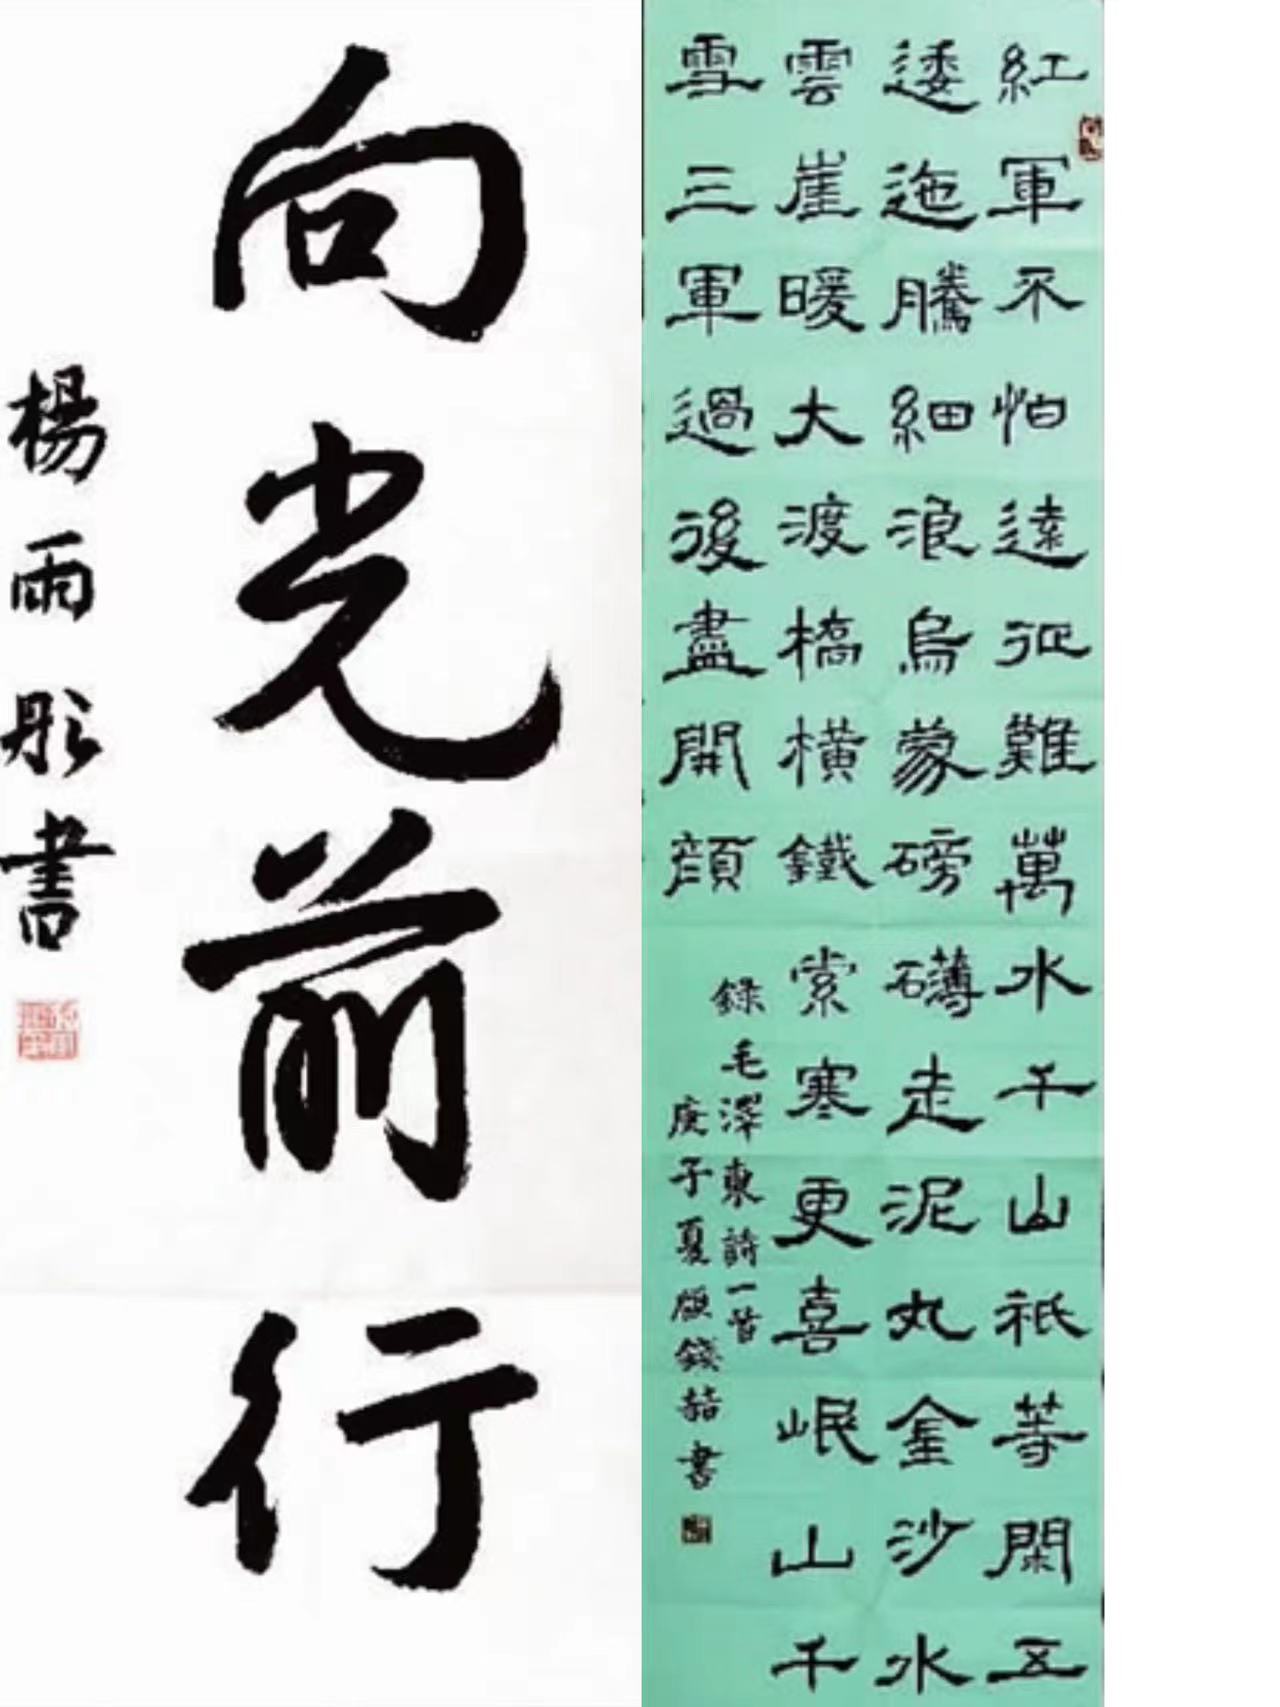 向光前行
楊雨彤書
紅軍不怕遠征難萬水千山祇等閑五
逶迤騰細浪烏蒙磅礴走泥丸金沙水
雲崖暖大渡橋橫鐵索寒更喜岷山千
雪三軍過後盡開顏
錄毛澤東詩一首
庚子夏錢喆書